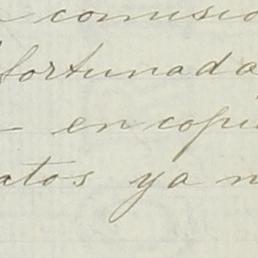 n comisio
fortunada
- en copi
atos ya n